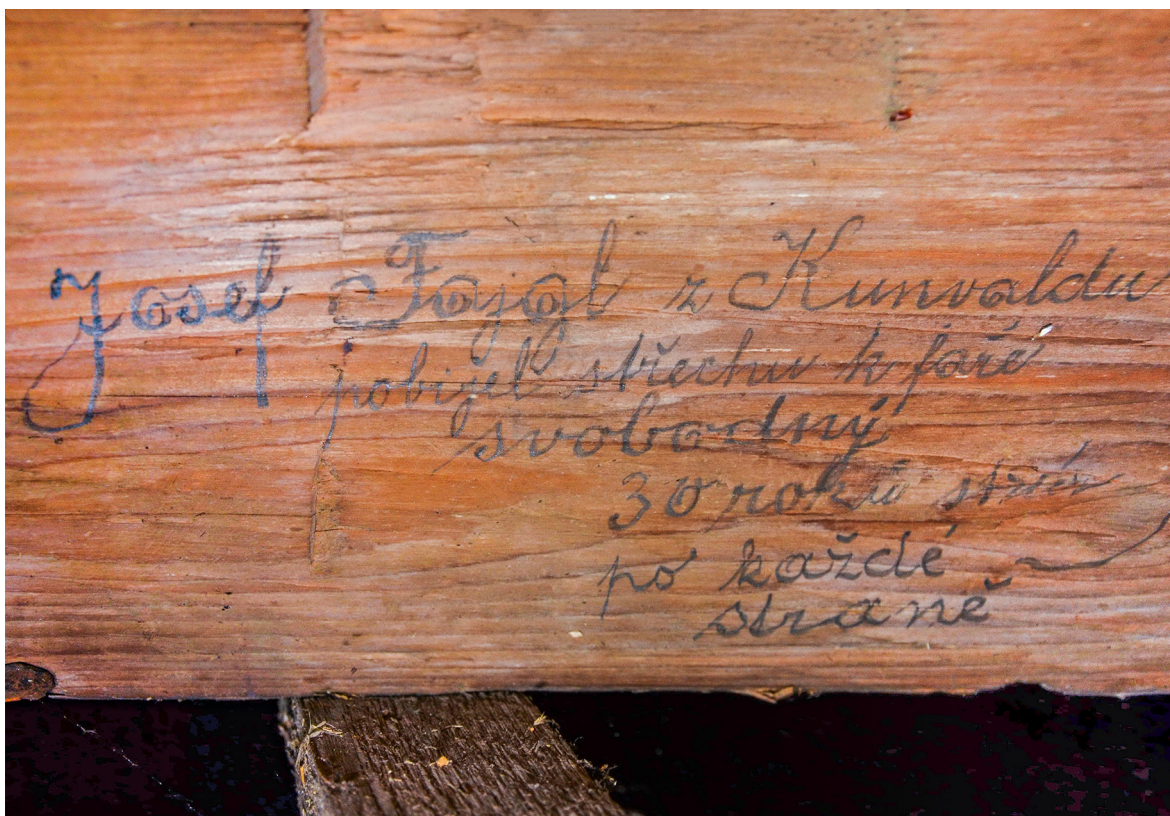 Josef Fajgl z Kunvaldu
pobijel střechu k faře
svobodný
30 roků
po každé
straně